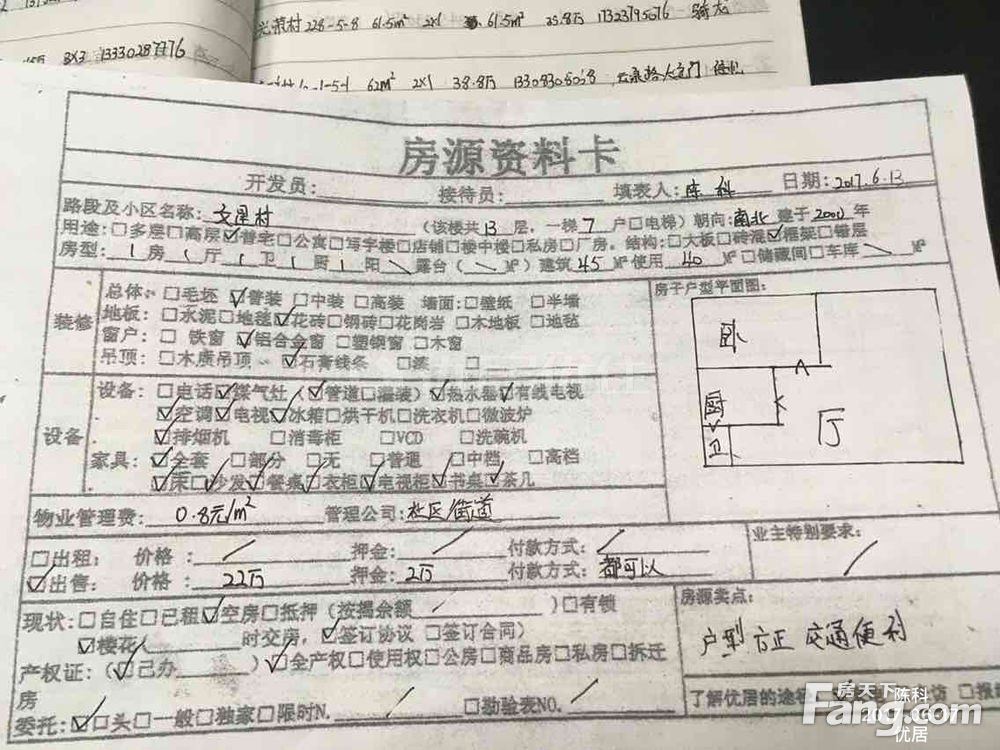 光荣村 228-5-8 61.5m² 2×1 61.5m² 35.8万 17323795076
3×3 13330287776
62m² 2×1 38.8万 13308308058
房源资料卡
开发员: 接待员: 填表人: 陈科 日期: 2017.6.13
路段及小区名称: 文星村 (该楼共13层,一梯7户□电梯) 朝向: 南北 建于 年
用途: □多层□高层☑普宅□公寓□写字楼□店铺□楼中楼□私房□厂房。结构: □大板□砖混☑框架□错层
房型: 1房1厅1卫1厨1阳\露台(\M²) 建筑45M²使用40M²□储藏间□车库\M²
装修
总体: □毛坯☑普装□中装□高装 墙面: □壁纸□半墙
地板: □水泥□地毯☑花砖□钢砖□花岗岩□木地板□地毡
窗户: □铁窗☑铝合金窗□塑钢窗□木窗
吊顶: □木质吊顶☑石膏线条□漆□
房子户型平面图:
卧
厨
卫
厅
设备
设备: □电话☑煤气灶(☑管道□灌装)☑热水器☑有线电视
☑空调☑电视☑冰箱□烘干机□洗衣机□微波炉
☑排烟机□消毒柜□VCD□洗碗机
家具: ☑全套□部分□无□普通□中档□高档
☑床☑沙发☑餐桌☑衣柜☑电视柜☑书桌☑茶几
物业管理费: 0.8元/m² 管理公司: 社区街道
□出租: 价格: / 押金: / 付款方式: /
☑出售: 价格: 22万 押金: 2万 付款方式: 都可以
业主特别要求:
/
现状: □自住□已租☑空房□抵押(按揭余额 / )□有锁
☑楼花人 时交房,☑签订协议□签订合同)
产权证: (☑已办 )☑全产权□使用权□公房□商品房□私房□拆迁
房
委托: ☑口头□一般□独家□限时N. / □勘验表NO. /
房源卖点:
户型方正 交通便利
了解优居的途径
房天下
Fang.com
陈科
优居